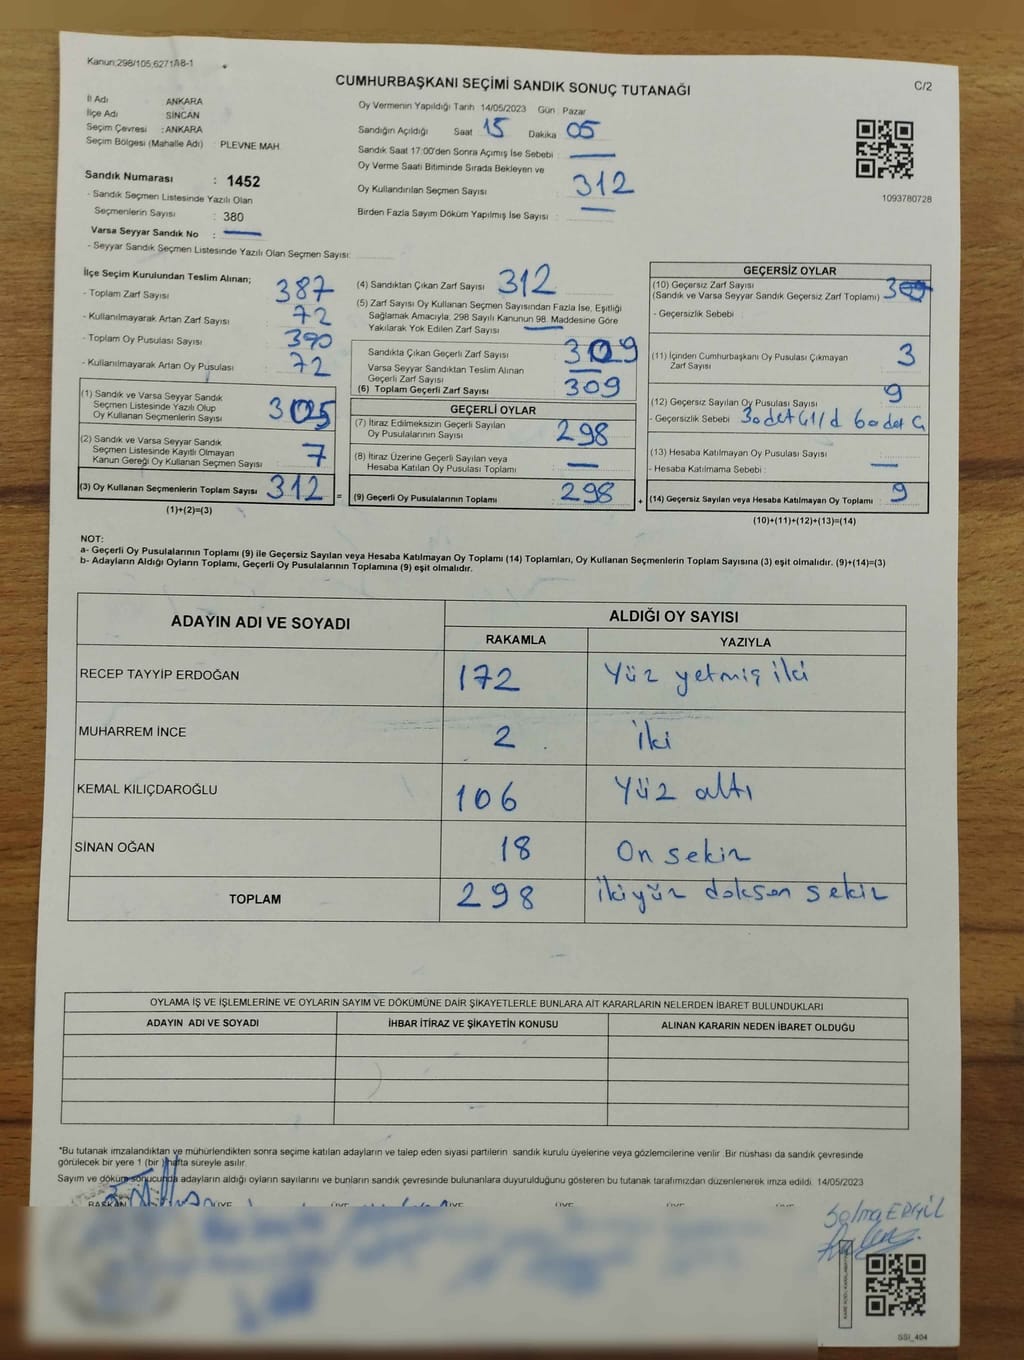 Kanun:298/105;6271/18-1
CUMHURBAŞKANI SEÇİMİ SANDIK SONUÇ TUTANAĞI
C/2
İl Adı ANKARA
İlçe Adı SİNCAN
Seçim Çevresi : ANKARA
Seçim Bölgesi (Mahalle Adı) : PLEVNE MAH.
Sandık Numarası : 1452
- Sandık Seçmen Listesinde Yazılı Olan
Seçmenlerin Sayısı : 380
Varsa Seyyar Sandık No :
- Seyyar Sandık Seçmen Listesinde Yazılı Olan Seçmen Sayısı:
Oy Vermenin Yapıldığı Tarih 14/05/2023 Gün : Pazar
Sandığın Açıldığı Saat 15 Dakika 05
Sandık Saat 17:00'den Sonra Açımış İse Sebebi :
Oy Verme Saati Bitiminde Sırada Bekleyen ve
Oy Kullandırılan Seçmen Sayısı : 312
Birden Fazla Sayım Döküm Yapılmış İse Sayısı :
1093780728
İlçe Seçim Kurulundan Teslim Alınan;
- Toplam Zarf Sayısı : 387
- Kullanılmayarak Artan Zarf Sayısı : 72
- Toplam Oy Pusulası Sayısı : 390
- Kullanılmayarak Artan Oy Pusulası : 72
(1) Sandık ve Varsa Seyyar Sandık
Seçmen Listesinde Yazılı Olup
Oy Kullanan Seçmenlerin Sayısı : 305
(2) Sandık ve Varsa Seyyar Sandık
Seçmen Listesinde Kayıtlı Olmayan
Kanun Gereği Oy Kullanan Seçmen Sayısı : 7
(3) Oy Kullanan Seçmenlerin Toplam Sayısı : 312 =
(1)+(2)=(3)
(4) Sandıktan Çıkan Zarf Sayısı : 312
(5) Zarf Sayısı Oy Kullanan Seçmen Sayısından Fazla İse, Eşitliği
Sağlamak Amacıyla, 298 Sayılı Kanunun 98. Maddesine Göre
Yakılarak Yok Edilen Zarf Sayısı :
Sandıkta Çıkan Geçerli Zarf Sayısı : 309
Varsa Seyyar Sandıktan Teslim Alınan
Geçerli Zarf Sayısı :
(6) Toplam Geçerli Zarf Sayısı : 309
GEÇERLİ OYLAR
(7) İtiraz Edilmeksizin Geçerli Sayılan
Oy Pusulalarının Sayısı : 298
(8) İtiraz Üzerine Geçerli Sayılan veya
Hesaba Katılan Oy Pusulası Toplamı :
(9) Geçerli Oy Pusulalarının Toplamı : 298 +
GEÇERSİZ OYLAR
(10) Geçersiz Zarf Sayısı
(Sandık ve Varsa Seyyar Sandık Geçersiz Zarf Toplamı) :
- Geçersizlik Sebebi :
(11) İçinden Cumhurbaşkanı Oy Pusulası Çıkmayan
Zarf Sayısı : 3
(12) Geçersiz Sayılan Oy Pusulası Sayısı : 9
- Geçersizlik Sebebi :
(13) Hesaba Katılmayan Oy Pusulası Sayısı :
- Hesaba Katılmama Sebebi :
(14) Geçersiz Sayılan veya Hesaba Katılmayan Oy Toplamı : 9
(10)+(11)+(12)+(13)=(14)
NOT:
a- Geçerli Oy Pusulalarının Toplamı (9) ile Geçersiz Sayılan veya Hesaba Katılmayan Oy Toplamı (14) Toplamları, Oy Kullanan Seçmenlerin Toplam Sayısına (3) eşit olmalıdır. (9)+(14)=(3)
b- Adayların Aldığı Oyların Toplamı, Geçerli Oy Pusulalarının Toplamına (9) eşit olmalıdır.
ADAYIN ADI VE SOYADI
ALDIĞI OY SAYISI
RAKAMLA YAZIYLA
RECEP TAYYİP ERDOĞAN 172 Yüz yetmiş iki
MUHARREM İNCE 2 iki
KEMAL KILIÇDAROĞLU 106 Yüz altı
SİNAN OĞAN 18 On sekiz
TOPLAM 298 ikiyüz doksan sekiz
OYLAMA İŞ VE İŞLEMLERİNE VE OYLARIN SAYIM VE DÖKÜMÜNE DAİR ŞİKAYETLERLE BUNLARA AİT KARARLARIN NELERDEN İBARET BULUNDUKLARI
ADAYIN ADI VE SOYADI İHBAR İTİRAZ VE ŞİKAYETİN KONUSU ALINAN KARARIN NEDEN İBARET OLDUĞU
*Bu tutanak imzalandıktan ve mühürlendikten sonra seçime katılan adayların ve talep eden siyasi partilerin sandık kurulu üyelerine veya gözlemcilerine verilir. Bir nüshası da sandık çevresinde
görülecek bir yere 1 (bir) hafta süreyle asılır.
Sayım ve döküm sonucunda adayların aldığı oyların sayılarını ve bunların sandık çevresinde bulunanlara duyurulduğunu gösteren bu tutanak tarafımızdan düzenlenerek imza edildi. 14/05/2023
BAŞKAN ÜYE ÜYE ÜYE ÜYE ÜYE ÜYE
SSI_404